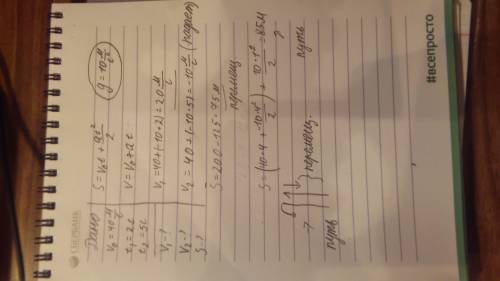 СБЕРБАНК
Дано
V₀ = 40 м/с
t₁ = 2с
t₂ = 5с
V₁ - ?
V₂ - ?
S - ?
S = V₀t + at²/2
g = 10 м/с²
V = V₀ + at
V₁ = 40 + (-10·2) = 20 м/с
V₂ = 40 + (-10·5) = -10 м/с (падает)
S = 200 - 125 = 75 м
перемещ
S = (40·4 + -10·4²/2) + 10·1²/2 = 85 м
путь
} перемещ.
путь
#всепросто